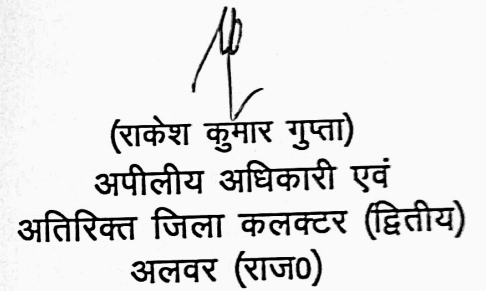 (राकेश कुमार गुप्ता)
अपीलीय अधिकारी एवं
अतिरिक्त जिला कलक्टर (द्वितीय)
अलवर (राज0)